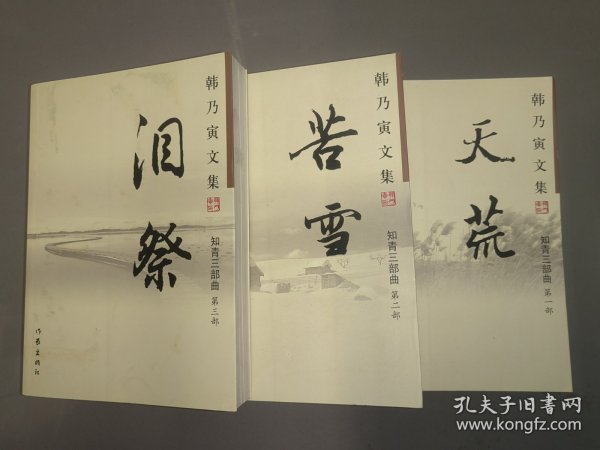 韩乃寅文集
泪祭
知青三部曲 第三部
作家出版社
韩乃寅文集
苦雪
知青三部曲 第二部
韩乃寅文集
天荒
知青三部曲 第一部
孔夫子旧书网
www.kongfz.com